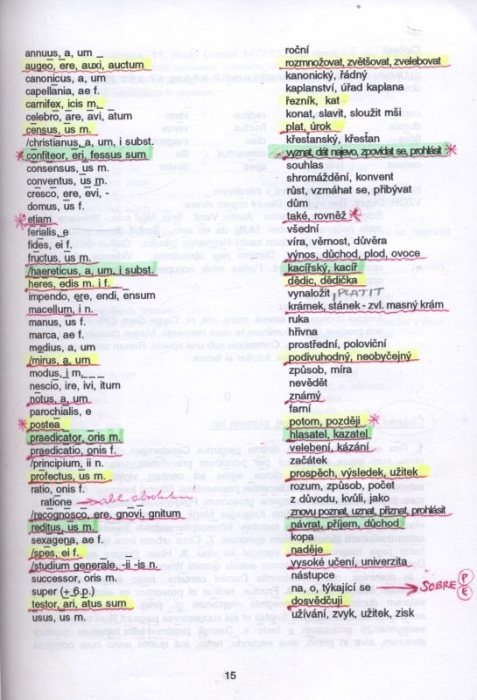 annuus, a, um roční
augeo, ere, auxi, auctum rozmnožovat, zvětšovat, zvelebovat
canonicus, a, um kanonický, řádný
capellania, ae f. kaplanství, úřad kaplana
carnifex, icis m. řezník, kat
celebro, are, avi, atum konat, slavit, sloužit mši
census, us m. plat, úrok
/christianus, a, um, i subst. křesťanský, křesťan
confiteor, eri, fessus sum vyznat, dát najevo, zpovídat se, prohlásit
consensus, us m. souhlas
conventus, us m. shromáždění, konvent
cresco, ere, evi, - růst, vzmáhat se, přibývat
domus, us f. dům
etiam také, rovněž
ferialis, e všední
fides, ei f. víra, věrnost, důvěra
fructus, us m. výnos, důchod, plod, ovoce
/haereticus, a, um, i subst. kacířský, kacíř
heres, edis m. i f. dědic, dědička
impendo, ere, endi, ensum vynaložit, PLATIT
macellum, i n. krámek, stánek - zvl. masný krám
manus, us f. ruka
marca, ae f. hřivna
medius, a, um prostřední, poloviční
/mirus, a, um podivuhodný, neobyčejný
modus, i m. způsob, míra
nescio, ire, ivi, itum nevědět
notus, a, um známý
parochialis, e farní
postea potom, později
praedicator, oris m. hlasatel, kazatel
praedicatio, onis f. velebení, kázání
/principium, ii n. začátek
profectus, us m. prospěch, výsledek, užitek
ratio, onis f. rozum, způsob, počet
ratione z důvodu, kvůli, jako
/recognosco, ere, gnovi, gnitum znovu poznat, uznat, přiznat, prohlásit
reditus, us m. návrat, příjem, důchod
sexagena, ae f. kopa
/spes, ei f. naděje
/studium generale, -ii -is n. vysoké učení, univerzita
successor, oris m. nástupce
super (+ 6.p.) na, o, týkající se SOBRE P E
testor, ari, atus sum dosvědčuji
usus, us m. užívání, zvyk, užitek, zisk
15